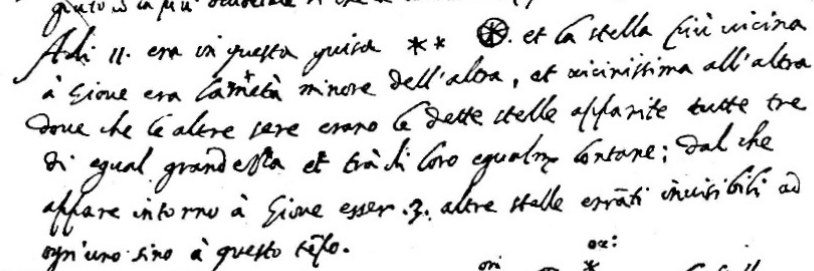 Adi 11. era in questa guisa ** ✳. et la stella più vicina
à Giove era la metà minore dell'altra, et vicinissima all'altra
dove che le altre sere erano le dette stelle apparite tutte tre
di egual grandezza et trà di loro egualmẽ lontane; dal che
appare intorno à Giove esser .3. altre stelle errãti invisibili ad
ogn'uno sino à questo tẽpo.